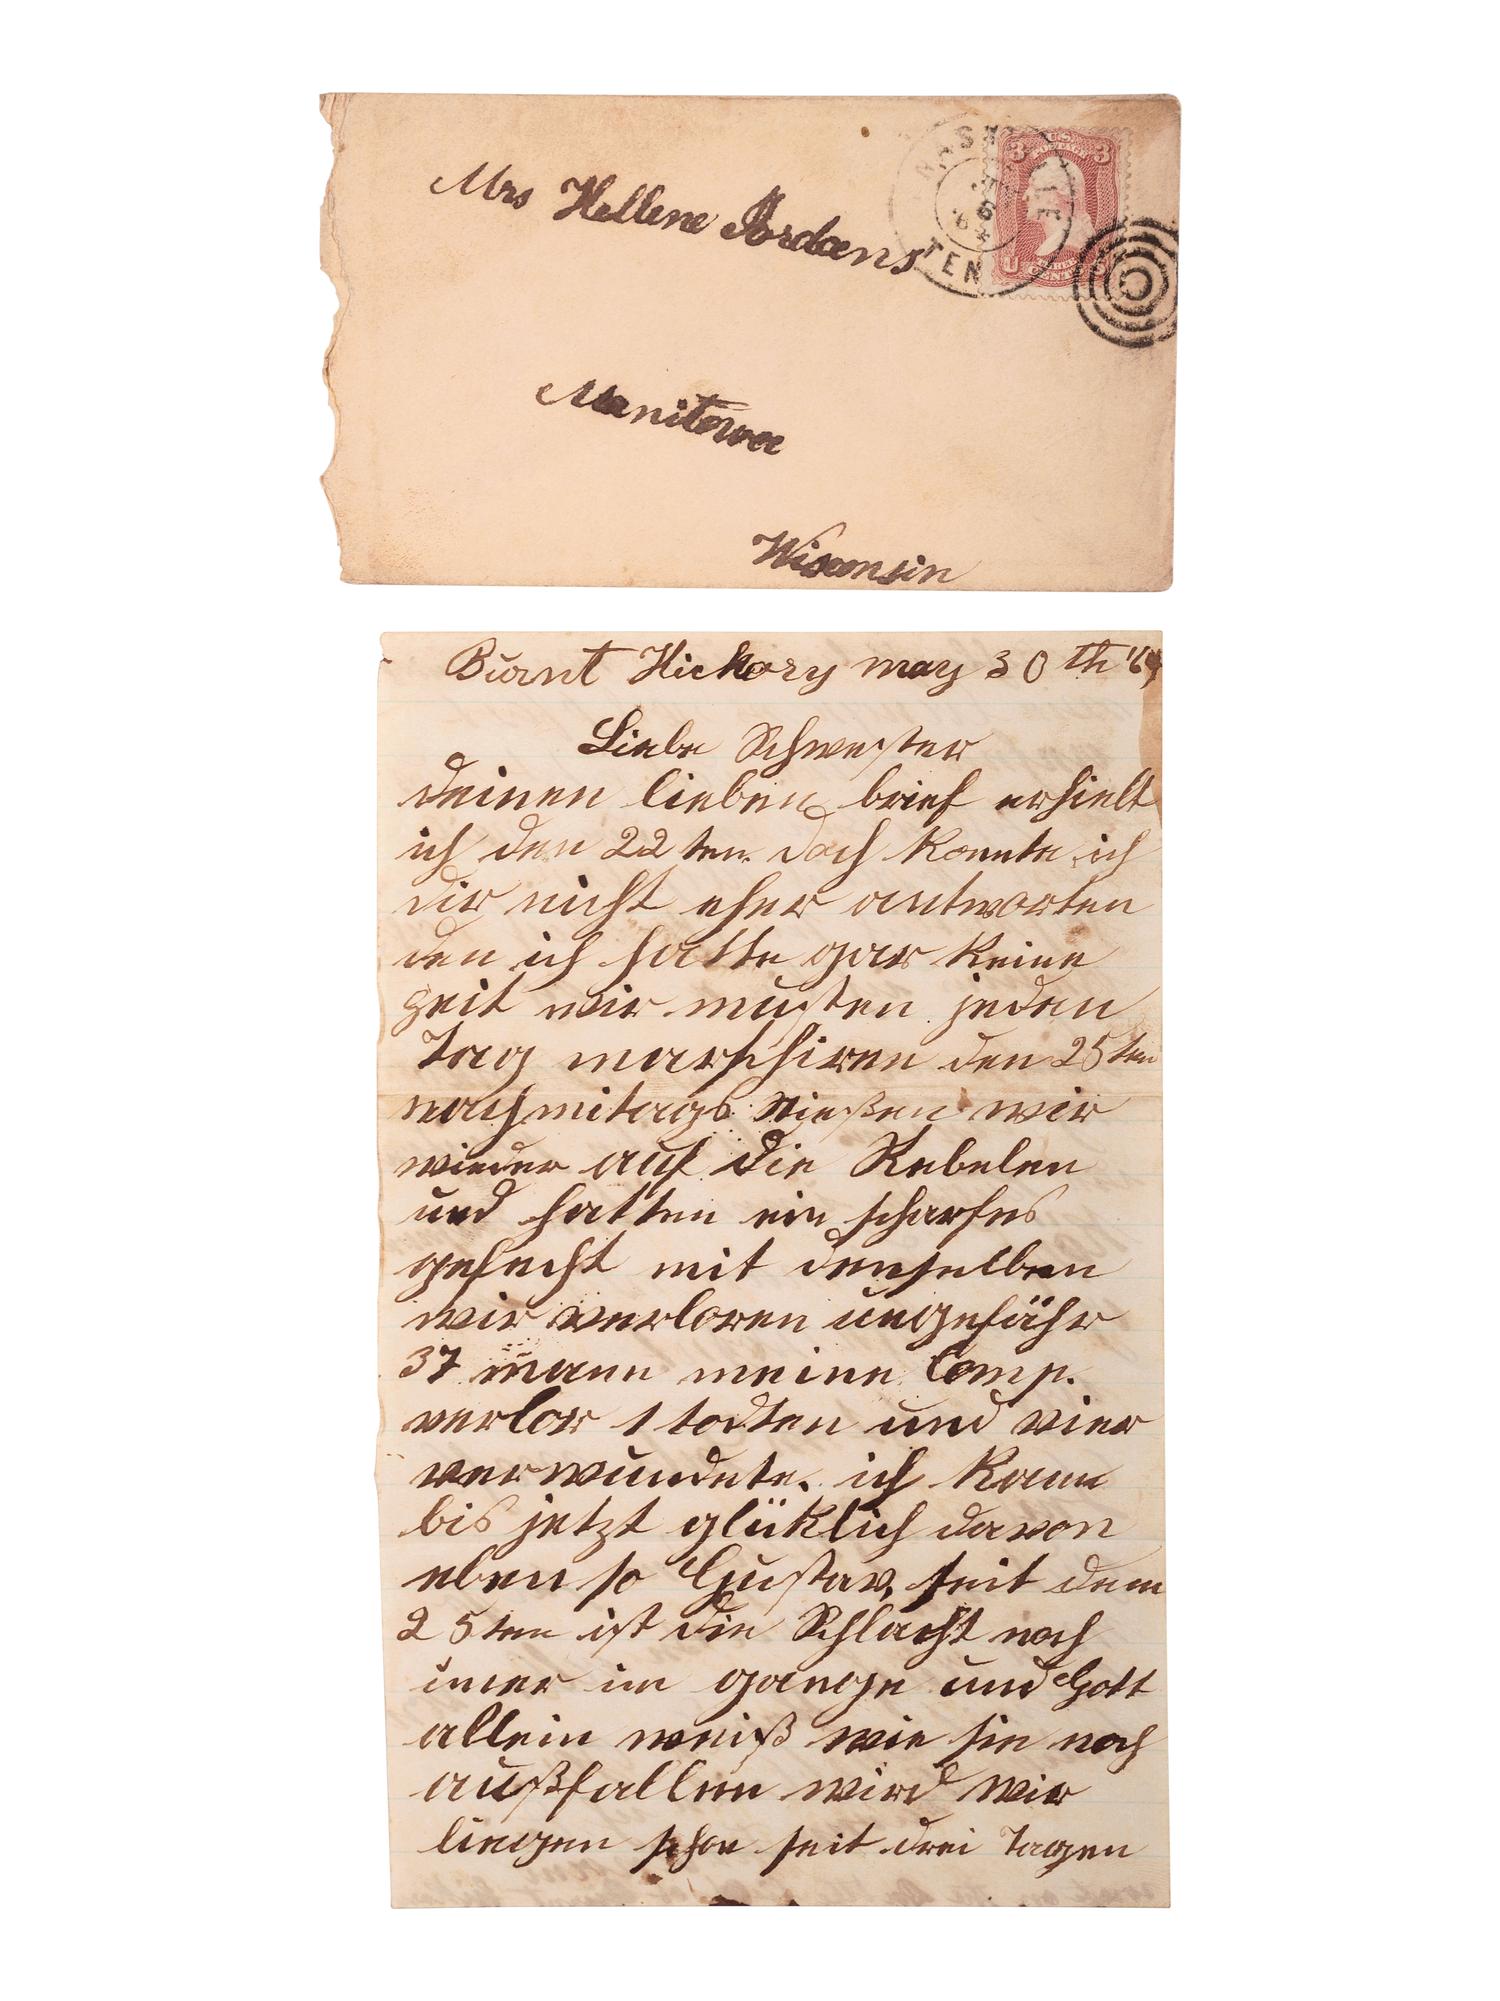 Mrs Hellene Jordans
Manitowoc
Wisconsin
NASHVILLE
TEN
U.S. POSTAGE
3 3
THREE CENTS
U
Burnt Hickory may 30th '64
Liebe Schwester
deinen lieben brief erhielt
ich den 22ten. doch konnte ich
dir nicht eher antworten
den ich hatte gar keine
zeit wir musten jeden
Tag marschiren den 25ten
nachmitags stießen wir
wieder auf die Rebelen
und hatten ein scharfes
gefecht mit denselben
wir verloren ungefähr
37 mann meine Comp.
verlor 1 todten und vier
verwundete. ich kam
bis jetzt glüklich davon
eben so Gustav, seit dem
25ten ist die Schlacht noch
imer im gange und Gott
allein weiß wie sie noch
außfallen wird wir
liegen schon seit drei Tagen